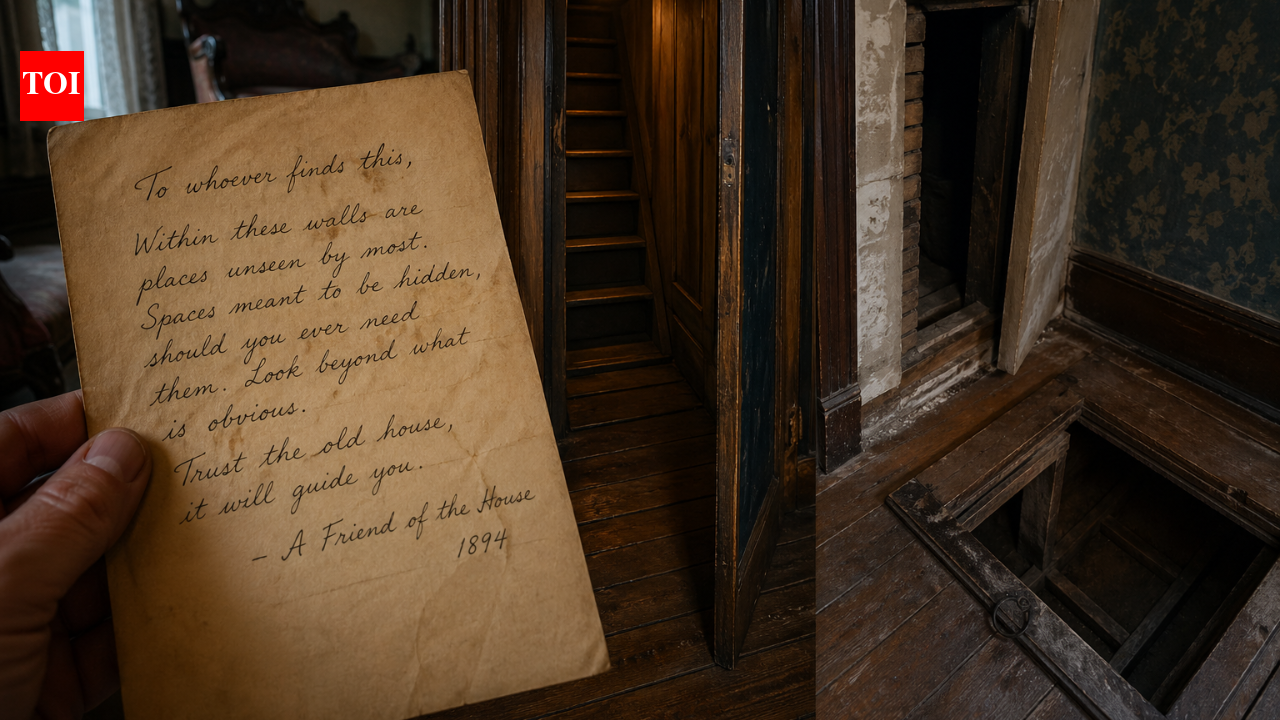 TOI
To whoever finds this,
Within these walls are
places unseen by most.
Spaces meant to be hidden,
should you ever need
them. Look beyond what
is obvious.
Trust the old house,
it will guide you.
– A Friend of the House
1894